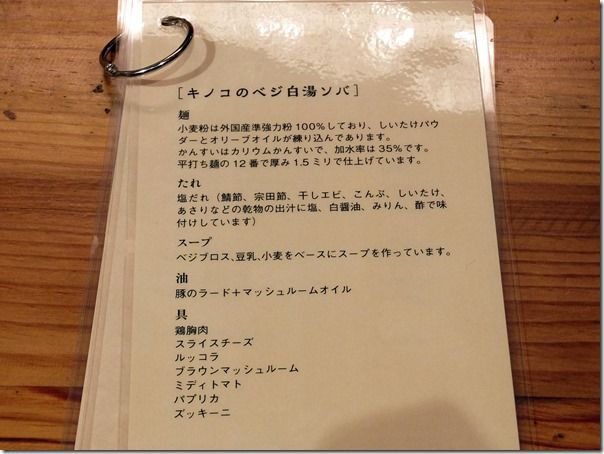 [キノコのベジ白湯ソバ]
麺
小麦粉は外国産準強力粉100%しており、しいたけパウ
ダーとオリーブオイルが練り込んであります。
かんすいはカリウムかんすいで、加水率は35%です。
平打ち麺の12番で厚み1.5ミリで仕上げています。
たれ
塩だれ（鯖節、宗田節、干しエビ、こんぶ、しいたけ、
あさりなどの乾物の出汁に塩、白醤油、みりん、酢で味
付けしています）
スープ
ベジブロス、豆乳、小麦をベースにスープを作っています。
油
豚のラード＋マッシュルームオイル
具
鶏胸肉
スライスチーズ
ルッコラ
ブラウンマッシュルーム
ミディトマト
パプリカ
ズッキーニ